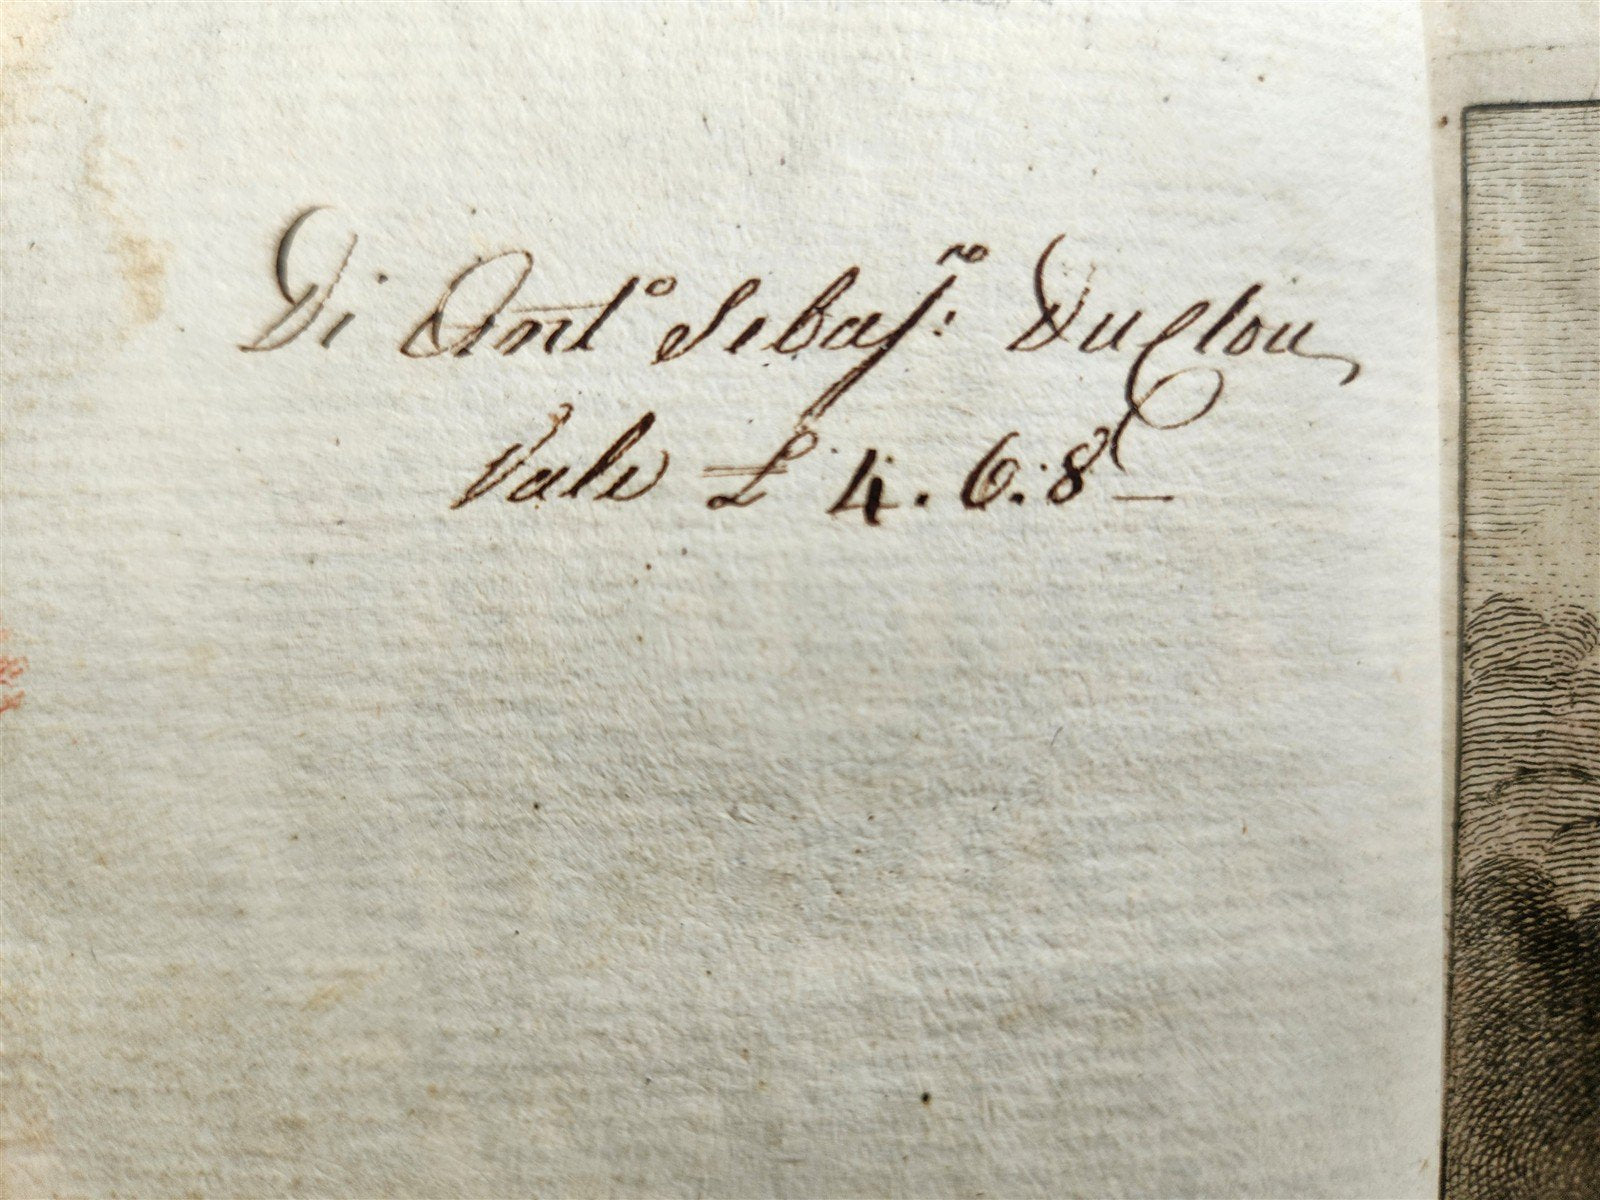 Di Ant.º Sebas.ⁿᵒ Duclou
Vale £ 4. 6. 8 —